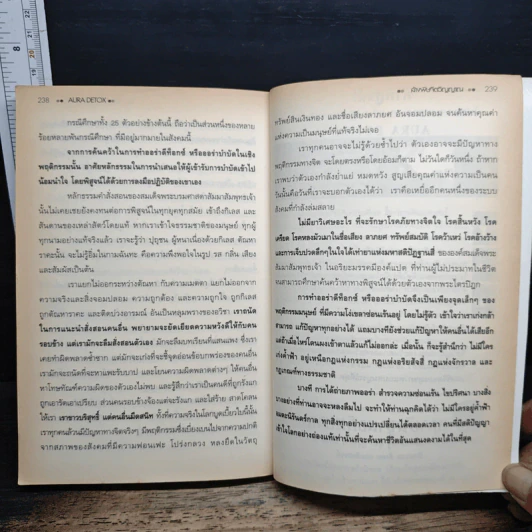 238 AURA DETOX
กรณีศึกษาทั้ง 25 ตัวอย่างข้างต้นนี้ ถือว่าเป็นส่วนหนึ่งของหลาย
ร้อยหลายพันกรณีศึกษา ที่มีอยู่มากมายในสังคมนี้
จากการค้นคว้าในการทำออร่าดีท็อกซ์ หรือออร่าบำบัดในเชิง
พฤติกรรมนั้น อาศัยหลักธรรมในการนำเสนอให้ผู้เข้ารับการบำบัดเข้าไป
น้อมนำใจ โดยพิสูจน์ได้ด้วยการลงมือปฏิบัติของเราเอง
หลักธรรมคำสั่งสอนของสมเด็จพระบรมศาสดาสัมมาสัมพุทธเจ้า
นั้นไม่เคยเชยยังคงทนต่อการพิสูจน์ในทุกยุคทุกสมัย เข้าถึงกิเลส และ
สันดานของเหล่าสัตว์โดยแท้ หากเราเข้าใจธรรมชาติของมนุษย์ ทุกผู้
ทุกนามอย่างแท้จริงแล้ว เราจะรู้ว่า ปุถุชน ผู้หนาเนื่องด้วยกิเลส ตัณหา
ราคะนั้น จะไม่รู้อิ่มในกามฉันทะ คือความพึงพอใจในรูป รส กลิ่น เสียง
และสัมผัสเป็นต้น
เราแยกไม่ออกระหว่างตัณหา กับความเมตตา แยกไม่ออกจาก
ความจริงและสิ่งจอมปลอม ความถูกต้อง และความถูกใจ ถูกกิเลส
ถูกตัณหาราคะ และติดบ่วงอารมณ์ อันเป็นหลุมพรางของอวิชา เราถนัด
ในการแนะนำสั่งสอนคนอื่น พยายามจะยัดเยียดความหวังดีให้กับคน
รอบข้าง แต่เรามักจะลืมสั่งสอนตัวเอง มักจะลืมบทเรียนที่แสนแพง ซึ่งเรา
เคยทำผิดพลาดซ้ำซาก แต่มักจะเก่งที่จะชี้จุดอ่อนข้อบกพร่องของคนอื่น
เรามักจะถนัดที่จะหาแพะรับบาป และโยนความผิดพลาดต่างๆ ให้คนอื่น
หาโทษทัณฑ์ความผิดของตัวเองไม่พบ และรู้สึกว่าเราเป็นคนดีที่ถูกรังแก
ถูกเอารัดเอาเปรียบ ส่วนคนรอบข้างจ้องแต่จะรังแก และใส่ร้าย สาดโคลน
ให้เรา เราขาวบริสุทธิ์ แต่คนอื่นมืดสนิท
เราทุกคนล้วนมีปัญหาทางจิตจริงๆ มีพฤติกรรมซึ่งเบี่ยงเบนไปจากความปกติ
จากสภาพของสังคมที่มีความฟอนเฟะ โปร่งกลวง หลงยึดในวัตถุ
239
ทรัพย์สินเงินทอง และชื่อเสียงลาภยศ อันจอมปลอม จนค้นหาคุณค่า
แห่งความเป็นมนุษย์ที่แท้จริงไม่เจอ
เราทุกคนอาจจะไม่รู้ด้วยซ้ำไปว่า ตัวเองอาจจะมีปัญหาทาง
พฤติกรรมทางจิต จะโดยตรงหรือโดยอ้อมก็ตาม ไม่วันใดก็วันหนึ่ง ถ้าหาก
เราพบว่าตัวเองกำลังย่ำแย่ หมดหวัง สูญเสียคุณค่าแห่งความเป็นคน
วันนั้นคือวันที่เราจะบอกตัวเองได้ว่า เราคือเหยื่ออีกคนหนึ่งของระบบ
สังคมที่กำลังล่มสลาย
ไม่มียาวิเศษอะไร ที่จะรักษาโรคภัยทางจิตใจ โรคสิ้นหวัง โรค
เครียด โรคหลงมัวเมาในชื่อเสียง ลาภยศ ทรัพย์สมบัติ โรคว้าเหว่ โรคอ้างว้าง
และการเจ็บปวดลึกๆในใจได้เท่ายาแห่งมหาสติปัฏฐานสี่ ขององค์สมเด็จพระ
สัมมาสัมพุทธเจ้า ในอริยะมรรคมีองค์แปด ที่ท่านผู้ไม่ประมาทในชีวิต
จนสามารถศึกษาค้นคว้าหาทางพิสูจน์ได้ด้วยตัวเองจากพระไตรปิฎก
การทำออร่าดีท็อกซ์ หรือออร่าบำบัดจึงเป็นเพียงจุดเล็กๆ ของ
พฤติกรรมมนุษย์ ที่มีความโง่เขลาซ่อนเร้นอยู่ โดยไม่รู้ตัว เข้าใจว่าเราเก่งกล้า
สามารถ แก้ปัญหาทุกอย่างได้ แถมบางทียังช่วยแก้ปัญหาให้คนอื่นได้เสียอีก
แต่ถ้าเมื่อไหร่โดนผงเข้าตาแล้วแก้ไม่ออกล่ะ เมื่อนั้น ก็จะรู้สำนึกว่า ไม่มีใคร
เก่งค้ำฟ้า อยู่เหนือกฎแห่งกรรม กฎแห่งอริยสัจสี่ กฎแห่งจักรวาล และ
กฎเกณฑ์ทางธรรมชาติ
บางที การได้ถ่ายภาพออร่า สำรวจความซ่อนเร้น ไขปริศนา บางสิ่ง
บางอย่างที่ท่านอาจจะหลงลืมไป จะทำให้ท่านฉุกคิดได้ว่า ไม่มีใครอยู่ค้ำฟ้า
และนิรันดร์กาล ทุกสิ่งทุกอย่างแปรเปลี่ยนได้ตลอดเวลา คนที่มีสติปัญญา
เข้าใจโลกอย่างถ่องแท้เท่านั้นที่จะค้นหาชีวิตอันแสนงดงามได้ในที่สุด